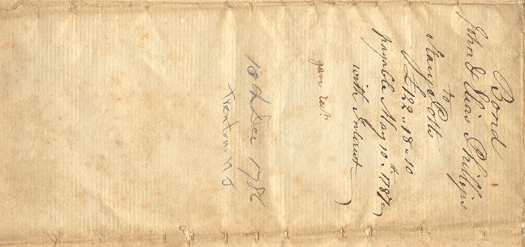 Bond
John & Elias Phillips
to
Mary Potts
£ 122 - 18 - 10
payable May 10th 1787
with Interest
10th Dec 1786
Trenton NJ